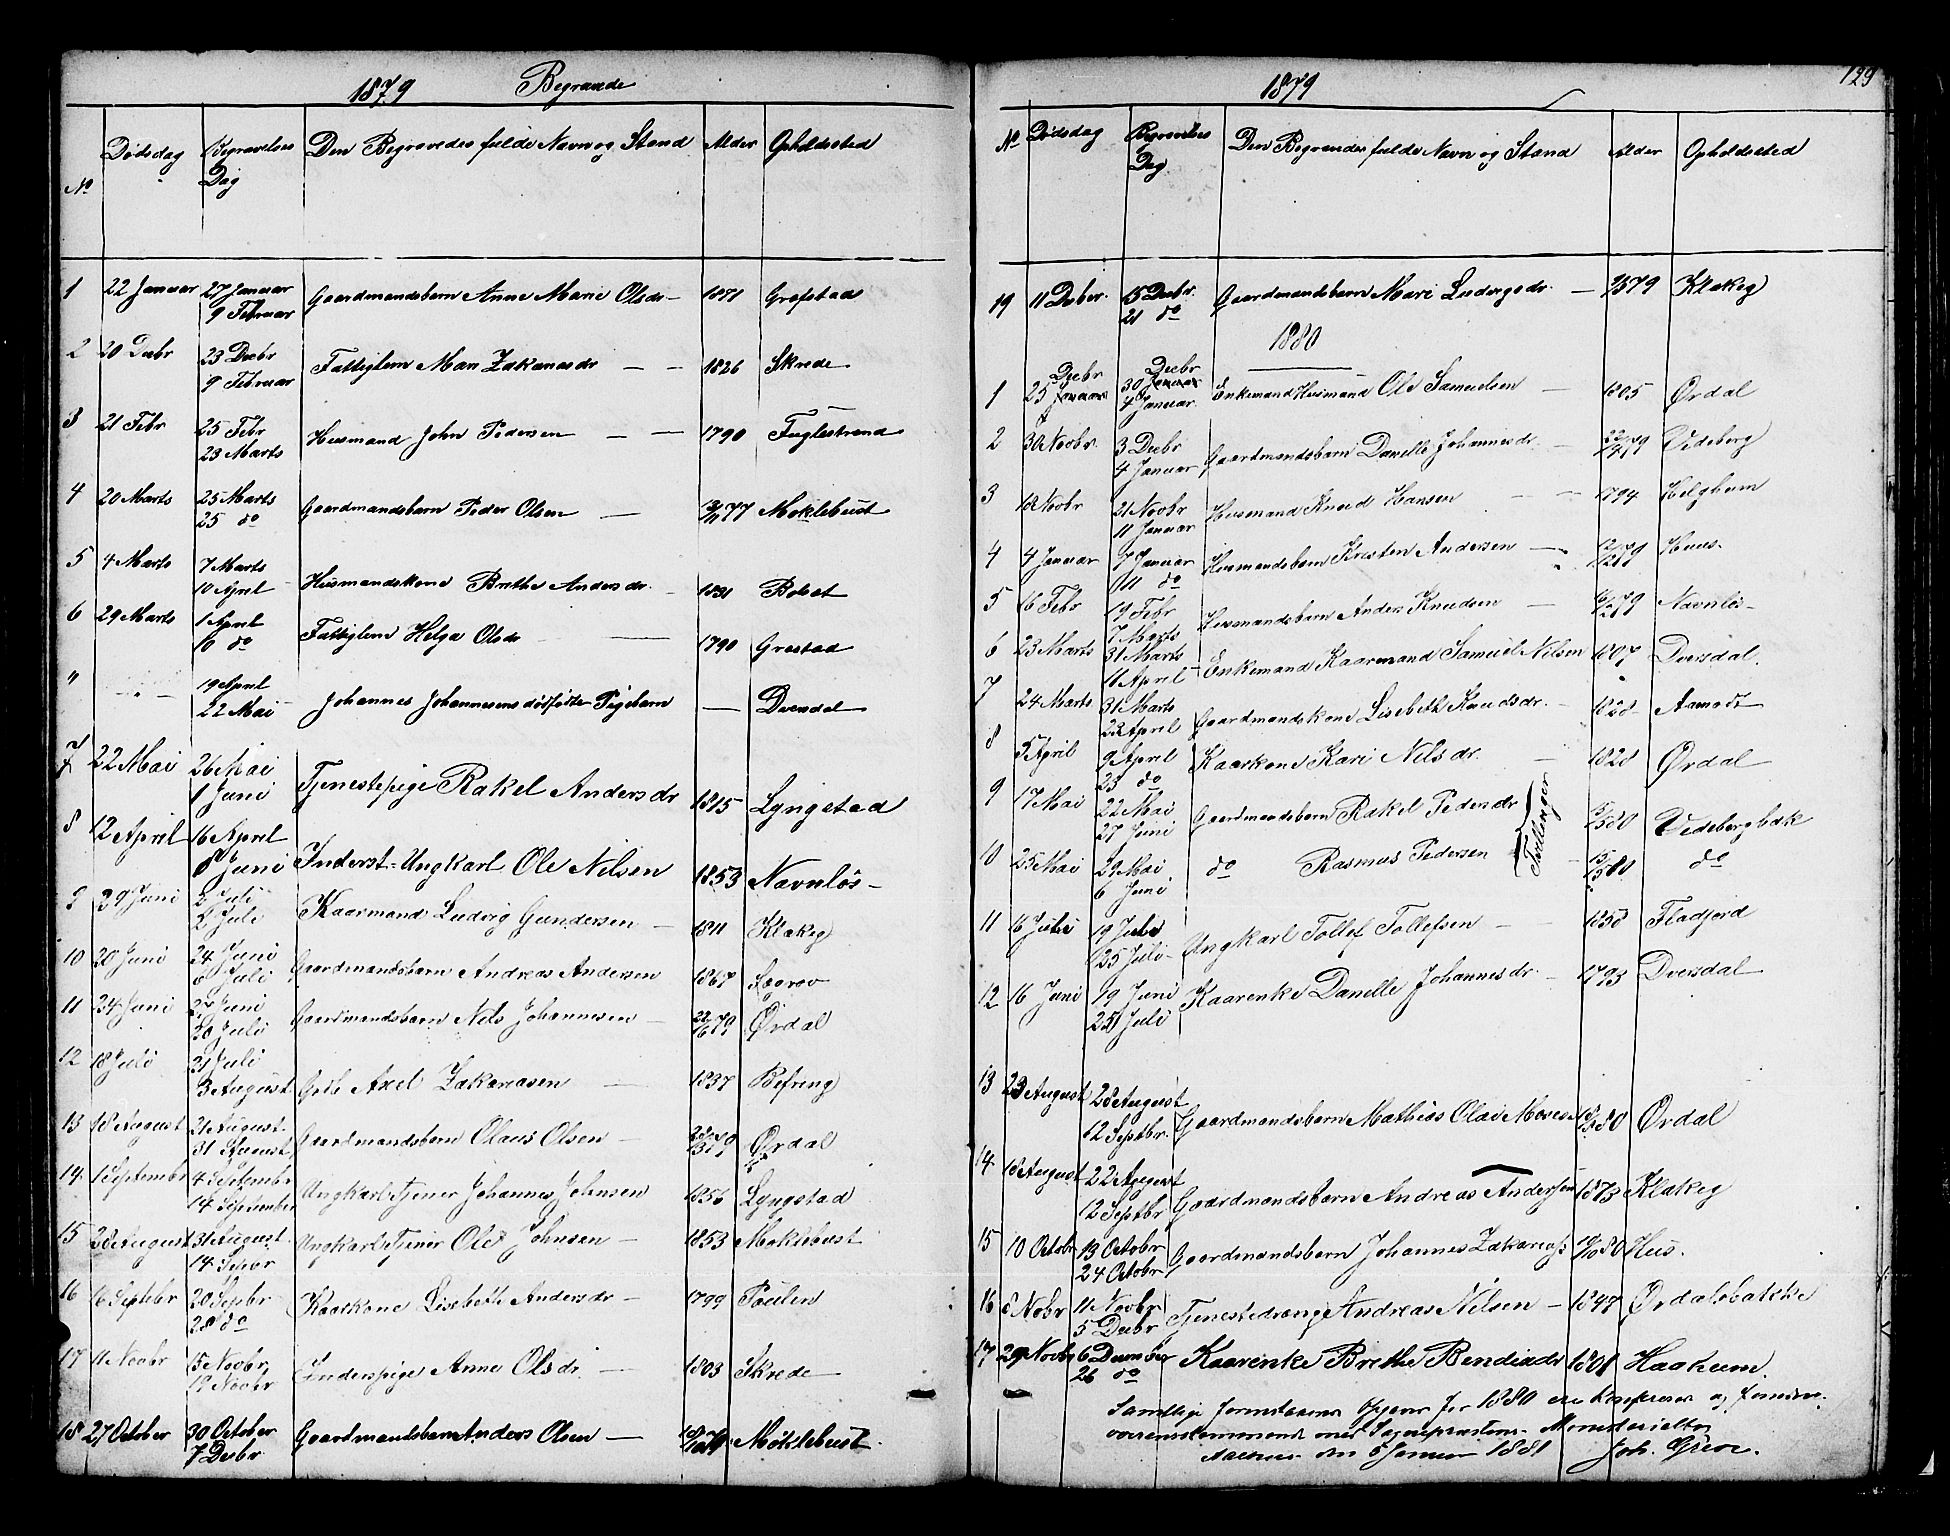 1879 Begravede
No Dødsdag Begravelses Dag Den Begravedes fulde Navn og Stand Alder Opholdssted
1 22 Januar 27 Januar 9 Februar Gaardmandsbarn Anne Marie Olsdr — 1871 Grøfstad
2 20 Decbr 23 Decbr 9 Februar Fattiglem Mari Zakariasdr — — 1826 Skrede
3 21 Febr 25 Febr 23 Marts Husmand John Pedersen — — 1790 Fuglestrand
4 20 Marts 25 Marts 25 do Gaardmandsbarn Peder Olsen — 77 Moklebust
5 4 Marts 7 Marts 10 April Husmandskone Brithe Andersdr. — 1831 Bolset
6 29 Marts 1 April 10 do Fattiglem Helga Olsdr — 1790 Grestad
" — " — 19 April 22 Mai Johannes Johannesens dødfødte Pigebarn — Dvesdal
7 22 Mai 26 Mai 1 Juni Tjenestepige Rakel Andersdr 1815 Lyngstad
8 12 April 16 April 8 Juni Inderst-Ungkarl Ole Nilsen 1853 Navnløs —
9 29 Juni 2 Juli 2 Juli Kaarmand Ludvig Gundersen — 1811 Klakeg
10 20 Juni 24 Juni 6 Juli Gaardmandsbarn Andreas Andersen 1867 Søgrov
11 24 Juni 27 Juni 20 Juli Gaardmandsbarn Nils Johannesen — 22/6 79 Ørdal
12 18 Juli 21 Juli 3 August Gdb Axel Zakariasen — 1837 Befring
13 18 August 21 August 31 August Gaardmandsbarn Olaus Olsen — 79 Ørdal
14 1 Septembr 4 Septembr 14 September Ungkarl Tjener Johannes Johnsen 1856 Lyngstad
15 28 August 31 August 14 Sepbr Ungkarl Tjener Ole Johnsen — 1853 Moklebust
16 16 Septebr 20 Sepbr 28 do Kaarkone Lisebeth Andersdr — 1799 Paulen
17 11 Novbr 15 Novbr 19 Novbr Inderstpige Anne Olsdr. — 1803 Skrede
18 27 October 30 October 7 Decbr Gaardmandsbarn Anders Olsen — 79 Møklebust.
1879
129
No Dødsdag Begravelses Dag Den Begravedes fulde Navn og Stand Alder Opholdssted
19 11 Decber. 15 Decbr. 21 do Gaardmandsbarn Mari Ludvigsdr. — 1879 Klakeg
1880
1 25 Decbr 30 Decbr 4 Januar. Enkemand Husmand Ole Samuelsen — 1805 Ørdal
2 30 Novbr. 3 Decbr 4 Januar Gaardmandsbarn Danelle Johannesdr. — 79 Videberg
3 18 Novbr 21 Novbr 11 Januar Husmand Knud Hansen — — 1794 Helgheim
4 4 Januar 7 Januar 11 do Husmandsbarn Kristen Andersen — 12/12 79 Huus.
5 16 Febr 19 Febr 7 Marts Husmandsbarn Anders Knudsen — 79 Navnløs —
6 23 Marts 31 Marts 11 April Enkemand Kaarmand Samuel Nilsen 1807 Dversdal.
7 24 Marts 31 Marts 23 April Gaardmandskone Lisebeth Knudsdr. — 1828 Aamodt
8 5 April 9 April 23 do Kaarkone Kari Nilsdr. — 1828 Ørdal
9 17 Mai 22 Mai 27 Juni Gaardmandsbarn Rakel Pedersdr 15/5 80 Videbergbak
10 25 Mai 29 Mai 6 Juni do Rasmus Pedersen 15/5 80 do
Tvillinger
11 16 Juli 19 Juli 25 Juli Ungkarl Tollef Tollefsen — 1858 Fladjord
12 16 Juni 19 Juni 25 Juli Kaarenke Danelle Johannesdr. — 1793 Dversdal
13 23 August 28 August 12 Septbr. Gaardmandsbarn Mathias Olai Mosesen 80 Ørdal
14 18 August 22 August 12 Septbr Gaardmandsbarn Andreas Andersen 1873 Klakeg
15 10 Octobr 13 Octobr 24 Octobr Gaardmandsbarn Johannes Zakariass 80 Hus.
16 8 Novbr 11 Novbr 5 Decbr Tjenestedreng Andreas Nilsen — 1847 Ørdalsbakke
17 29 Novbr 6 Decmber 26 do Kaarenke Brethe Bendixdr 1801 Haaheim.
Samtlige foranstaaende for 1880 ere konfererede og
overensstemmende med Sognepræstens Ministerialbog
den 6 Januar 1881 Joh. Greve.